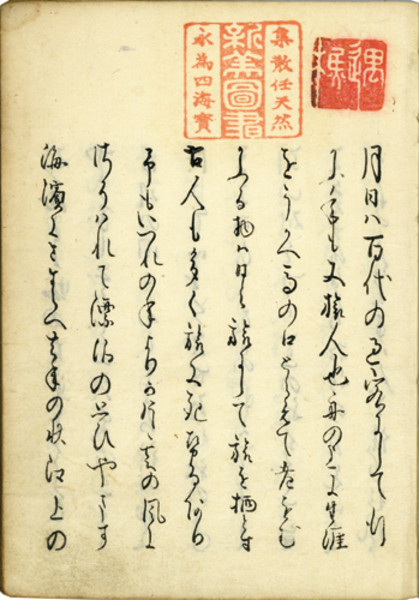 集散任天然
永為四海寶
月日ハ百代の過客にして行
かふ年も又旅人也舟の上に生涯
をうかへ馬の口とらえて老をむ
かふる物ハ日々旅にして旅を栖とす
古人も多く旅に死せるあり
予もいつれの年よりか片雲の風に
さそハれて漂泊の思ひやます
海濱にさすらへ去年の秋江上の